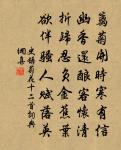 菊開時寒有信
幽香還釀客懷清
折歸忍負金蕉葉
欲伴騷人賦落英
史鑄菊花十二首詞典
網